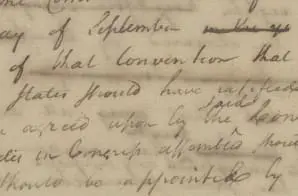 day of September in the ye
of that Convention that
States should have ratified
agreed upon by the said Con
in Congress assembled shou
should be appointed by